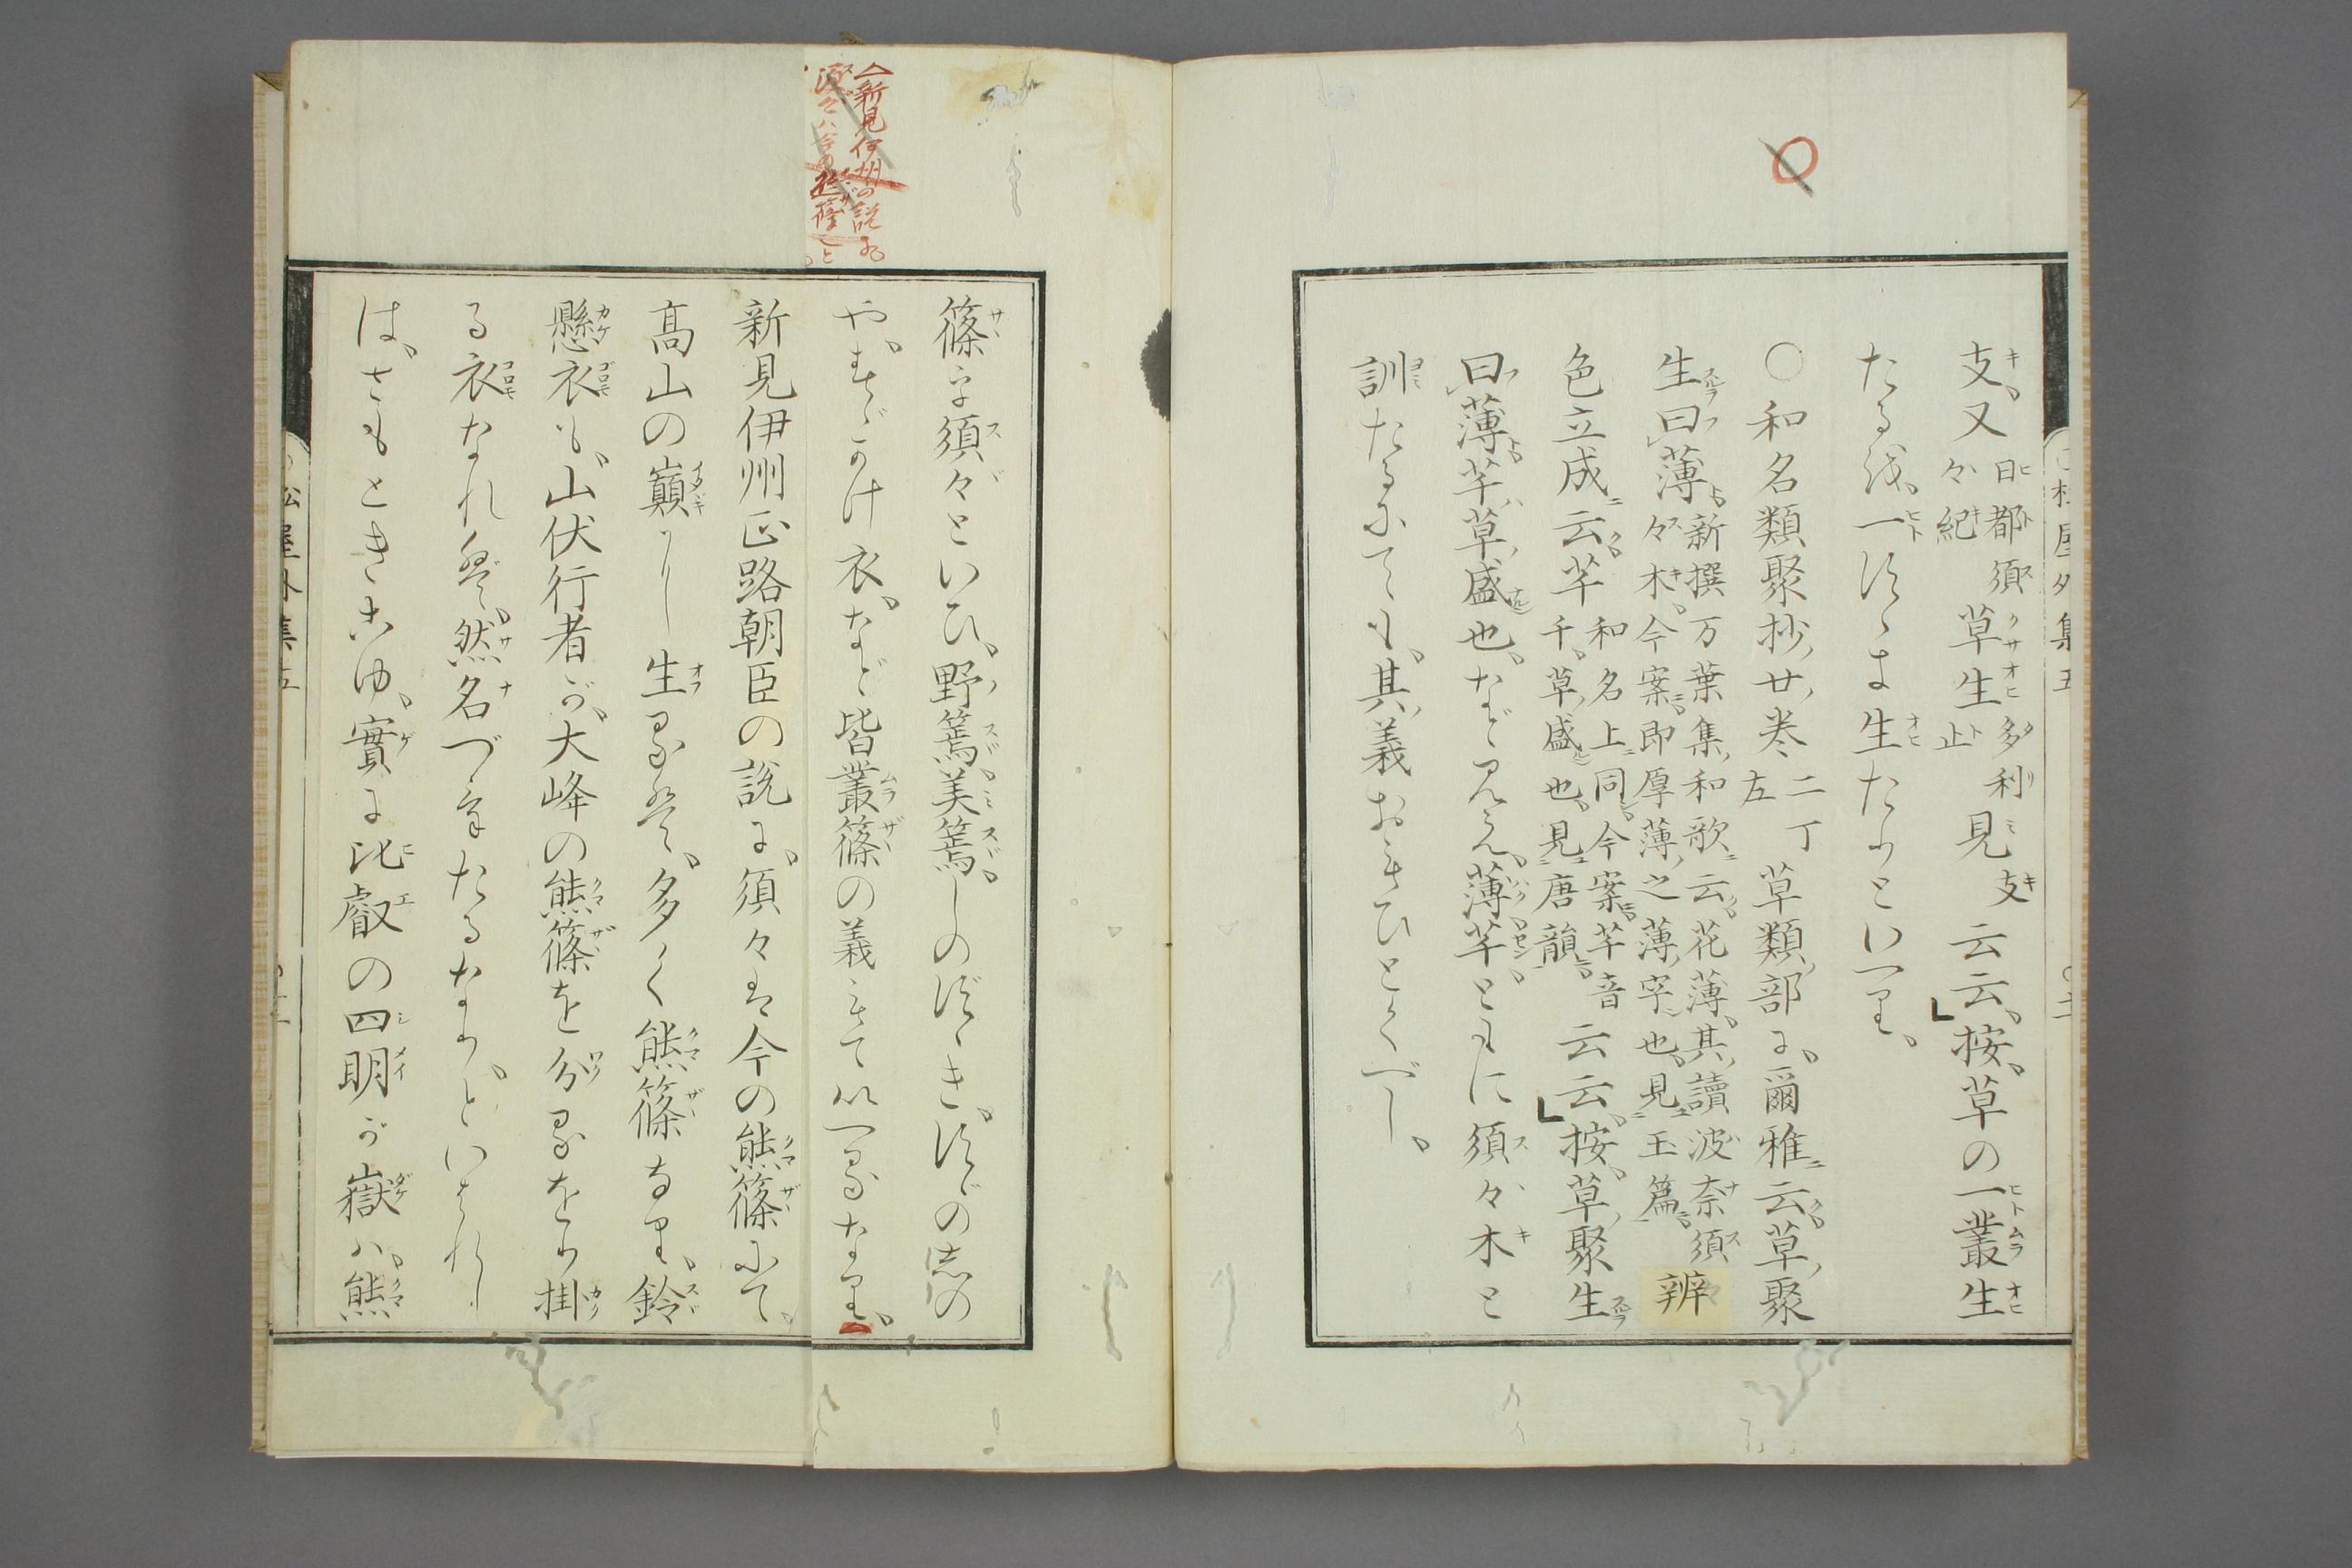 支、又日都須々紀草生多利止見支云云、按、草の一叢生
たる越、一須ゝま生たりといへり、
○和名類聚抄、廿、巻二丁左草類、部に、爾雅云草、聚
生曰薄、新撰万葉集、和歌云花薄、其、讀波奈須々木、今案即厚薄、之薄、字也、見玉篇、辨
色立成云芊和名上同、今案芊音千、草、盛也、見唐韻、云云、按、草、聚生
曰薄、芊、草、盛也、など見え、薄、芊、ともに須々木と
訓たるにても、其、義おもひとくべし、
篠を須々といひ、野篶、美篶、しのずゝき、すゞの志の
や、すゞかけ衣、など皆叢篠の義もて いへるなり、
新見伊州正路朝臣の説に、須々は今の熊篠にて、
高山の巓に生るは、多く熊篠なり、鈴
懸衣も、山伏行者が、大峰の熊篠を分るをり掛
る衣なれば、然名づけたるなり、といはれし
は、さもときこゆ、實に比叡の四明が嶽ハ、熊
△新見伊州の説に
須々ハ今の熊篠と
松屋外集五